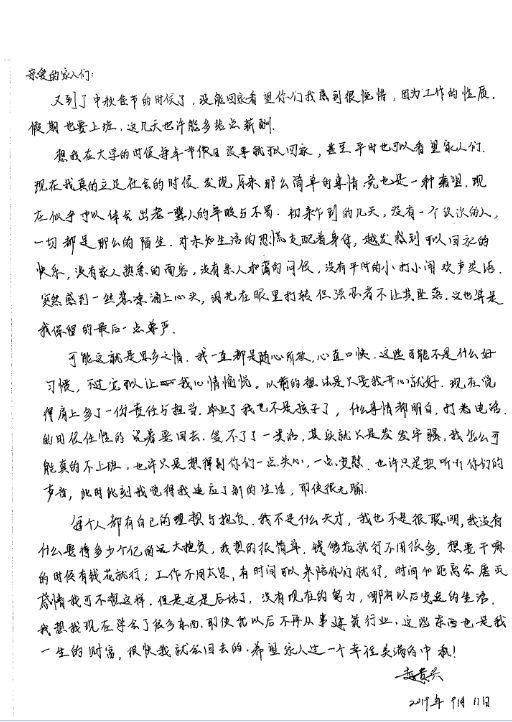 亲爱的家人们:
又到了中秋佳节的时候了,没能回家看望你们我感到很愧惜,因为工作的性质.
假期也要上班,这几天也许能多拿点薪酬.
想我在大学的时候每年节假日没事就往回家,甚至平时也可以看望家人们.
现在我真的立足社会的时候发现原来那么简单的事情竟也是一种奢望.现
在似乎可以体会出老一辈人的辛酸与不易.初来乍到的几天,没有一个认识的人,
一切都是那么的陌生.对未知生活的恐慌支配着身体,越发感到可以回家的
快乐,没有家人熟悉的面容,没有亲人和蔼的问候,没有平时的小打小闹欢声笑语.
突然感到一丝凄凉涌上心头,泪光在眼里打转但强忍着不让其坠落.这也算是
我保留的最后一点尊严.
可能这就是思乡之情.我一直都是随心所欲,心直口快.这些可能不是什么好
习惯,不过它可以让我心情愉悦。以前的想法是只要我开心就好.现在觉
得肩上多了一份责任与担当.毕业了我也不是孩子了,什么事情都明白,打着电话.
任性的说着要回去.受不了了一类话,其实就只是发发牢骚,我怎么可
能真的不上班,也许只是想得到你们一点关心,一点安慰.也许只是想听听你们的
声音,此时此刻我觉得我适应了新的生活,即使很无聊.
每个人都有自己的理想与抱负.我不是什么天才,我也不是很聪明,我没有
什么要挣多少个亿的远大抱负,我想的很简单.钱够花就行不用很多.想要干嘛
的时候有钱花就行;工作不用太累,有时间可以来陪你们就行,时间和距离会磨灭
感情我可不想这样.但是这是后话了,没有现在的努力,哪有以后安逸的生活.
我想我现在学会了很多东西.即使我以后不再从事建筑行业.这些东西也是我
一生的财富,很快我就会回去的.希望家人过一个幸福美满的中秋!
2019年9月11日